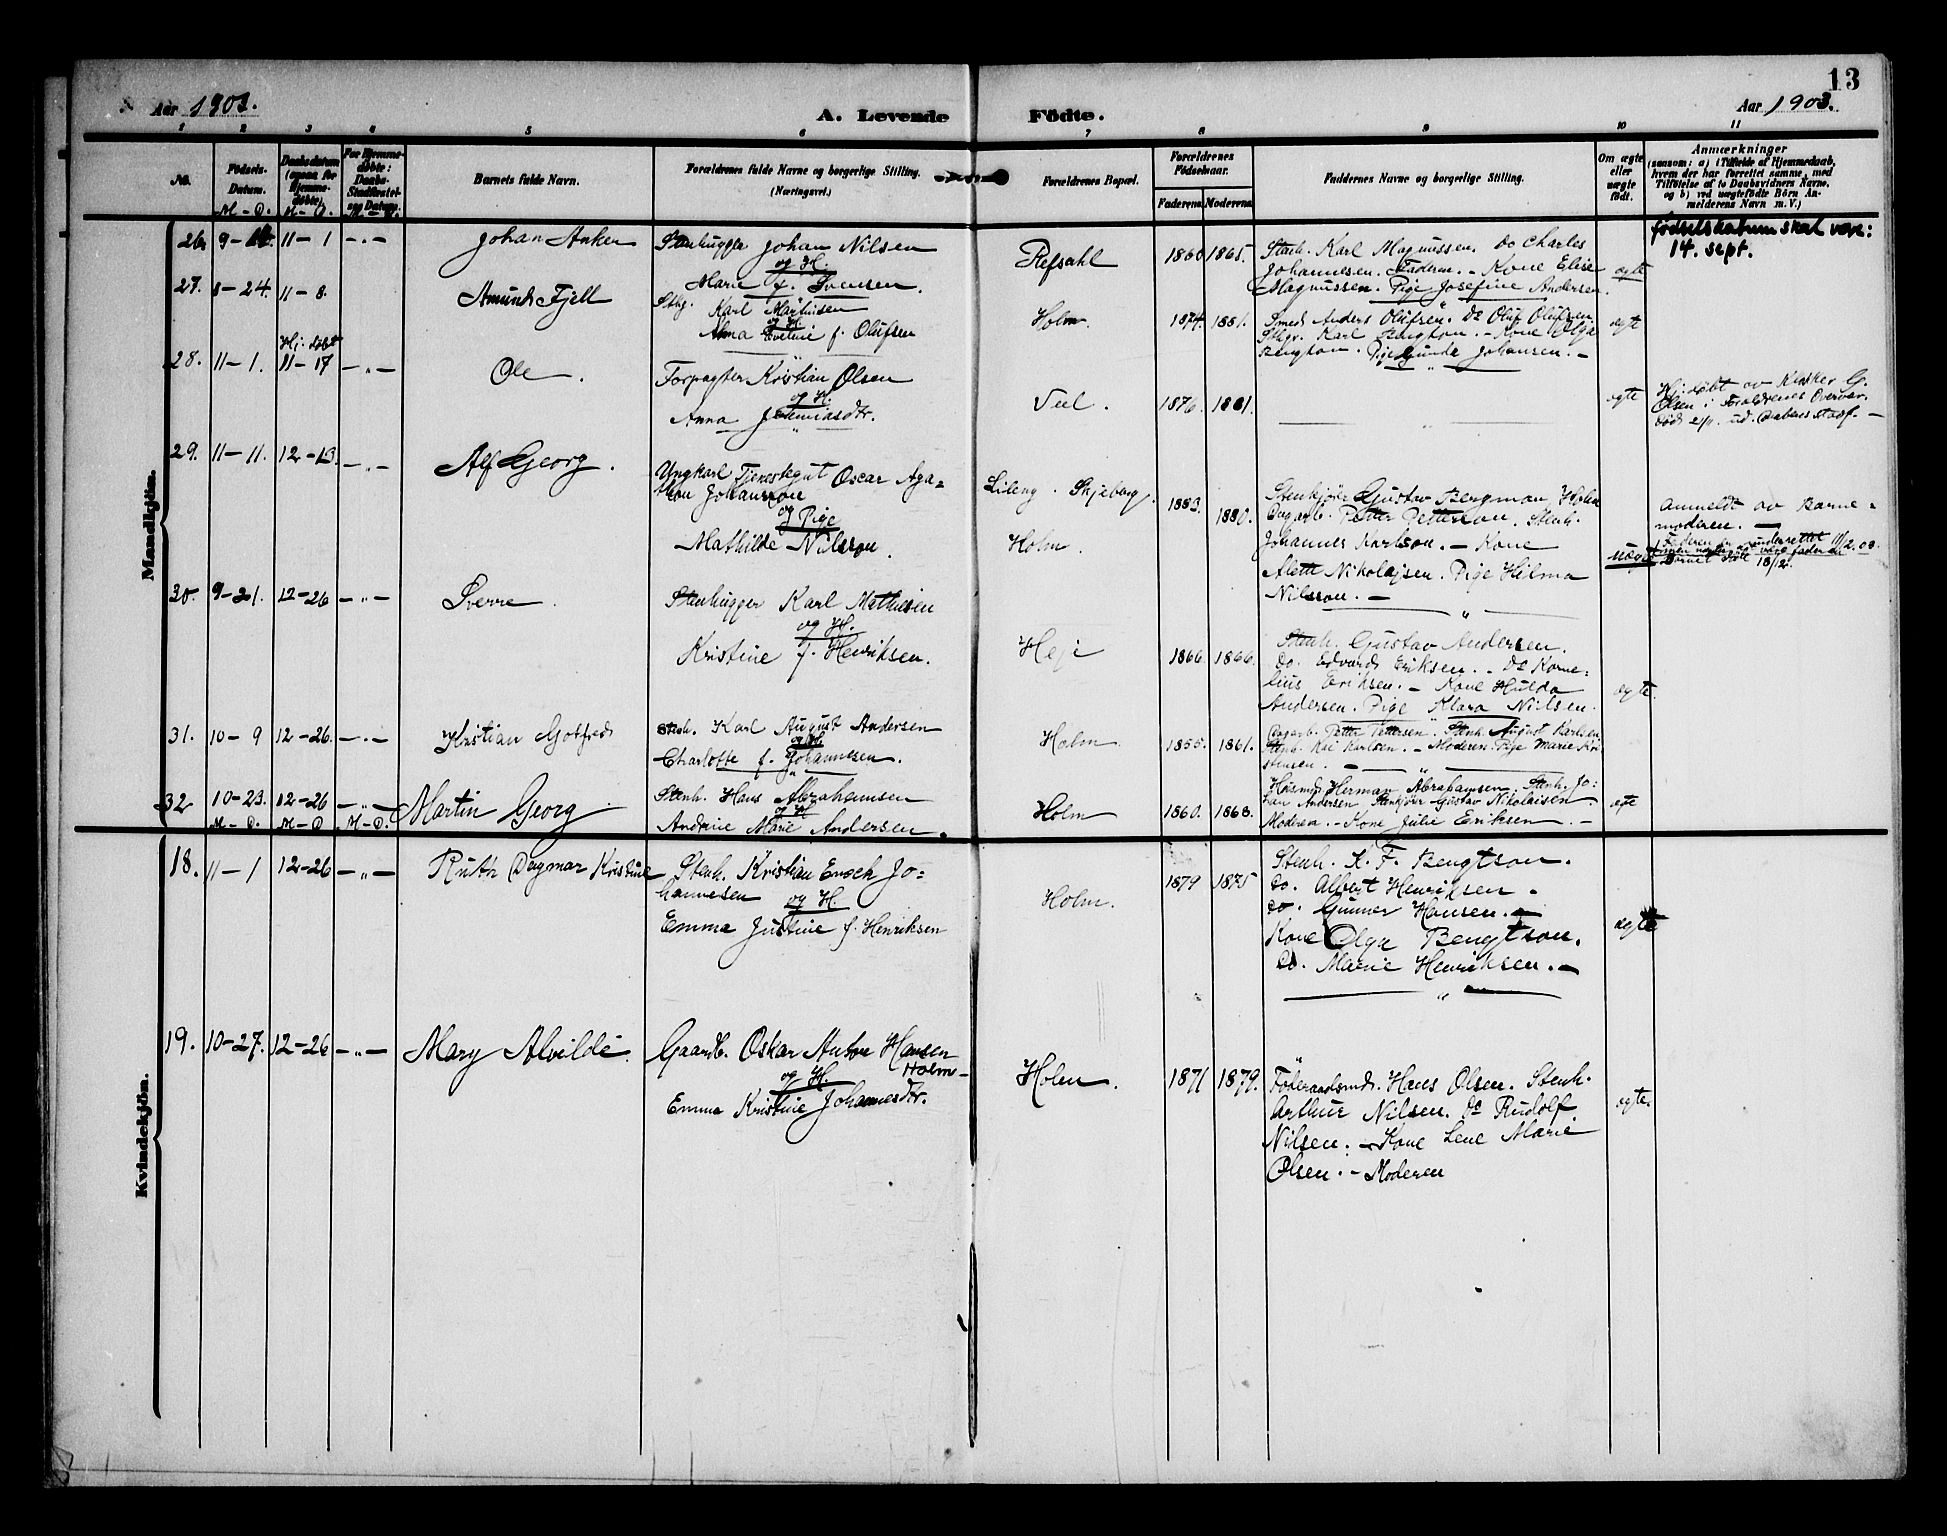 13
Aar 1903. A. Levende Födte. Aar 1903.
1 2 3 4 5 6 7 8 9 10 11
No. Födsels-Datum. M – D. Daabsdatum (ogsaa for Hjemmedöbte). M – D. For Hjemmedöbte: Daabs-Stadfæstelsens Datum. M – D. Barnets fulde Navn. Forældrenes fulde Navne og borgerlige Stilling. (Næringsvei.) Forældrenes Bopæl. Forældrenes Födselsaar. Faderens Moderens Faddernes Navne og borgerlige Stilling. Om ægte eller uægte født. Anmærkninger
(saasom: a) i Tilfælde af Hjemmedaab,
hvem der har forrettet samme, med
Tilföielse af to Daabsvidners Navne,
og b) ved uægtefödte Börn An-
melderens Navn m. V.)
Mandkjön.
26. 9– 11–1 –"– Johan Anker
Stenhugger Johan Nilsen
og H.
Marie f. Svensen.
Refsahl 1860 1865.
Stenh. Karl Magnussen. Do Charles
Johannesen. Faderen. – Kone Elise
Magnussen. Pige Josefine Andersen.
ægte
fødselsdatum skal være:
14. sept.
27. 8–24. 11–8. Amund Fjell
Sthg. Karl Martinsen
og H.
Alma Eveline f. Olufsen
Holm. 1874. 1881.
Smed Anders Olufsen. Do Oluf Olufsen
Sthgr. Karl Bengtson. – Kone Olga
Bengtson. Pige Gunda Johansen. –
ægte
28. 11–1. Hj. døbt
11–17 –"– Ole.
Forpagter Kristian Olsen
og H.
Anna Jeremiasdtr.
Veel. 1876. 1881.
ægte
Hj. døbt av Kirker G.
Olsen i Forældrenes Overvær.
Død 2/11. ud. Daabens stadf. –
29. 11–11. 12–13. –"– Alf Georg.
Ungkarl Tjenestegut Oscar Aga=
thon Johansson
og Pige
Mathilde Nilsson.
Lileng. Skjeberg.
Holm.
1883. 1880.
Stenkjører Gustav Bergman Holm
Dagarb. Petter Petterson. Stenh.
Johannes Karlson. – Kone
Alette Nikolajsen. Pige Hilma
Nilsson. –
uægte
Anmeldt av Barne=
moderen. –
Faderen er underrettet 11/2.03.
30. 9–21. 12–26 –"– Sverre.
Stenhugger Karl Mathisen
og H.
Kristine f. Henriksen.
Heje 1866. 1866.
Stenh. Gustav Andersen.
Do. Edvard Eriksen. – Do Korne=
lius Eriksen. – Kone Hulda
Andersen. Pige Klara Nilsen.
ægte.
31. 10–9 12–26. –"– Kristian Gotfred
Stenh. Karl August Andersen
og H.
Charlotte f. Johannesen.
Holm 1855. 1861.
Dagarb. Petter Pettersen. Stenh. August Karlsen
Stenh. Kai Karlsen. – Moderen. Pige Marie Kri
stensen. –
32 10–23. 12–26 –"– Martin Georg.
Stenh. Hans Abrahamsen
og H
Andrine Marie Andersen.
Holm 1860. 1868.
Husmd. Herman Abrahamsen. Stenh. Jo=
han Andersen Stenkjører Gustav Nikolaisen
Moderen. – Kone Julie Eriksen. –
ægte
M – D. M – D M – D.
Kvindekjön.
18. 11–1 12–26 –"– Ruth Dagmar Kristine
Stenh. Kristian Enoch Jo=
hannesen
og H.
Emma Justine f. Henriksen
Holm. 1879 1875
Stenh. K. F. Bengtson.
Do. Albert Henriksen –
Do. Gunner Hansen. –
Kone Olga Bengtson.
Do. Marie Henriksen. –
ægte
19. 10–27. 12–26 –"– Mary Alvilde.
Gaardb. Oskar Anton Hansen
Holm –
og H.
Emma Kristine Johannesdtr.
Holm. 1871 1879.
Føderaadsmd. Hans Olsen. Stenh.
Arthur Nilsen. Do Rudolf
Nilsen. – Kone Lene Marie
Olsen. – Moderen
ægte.